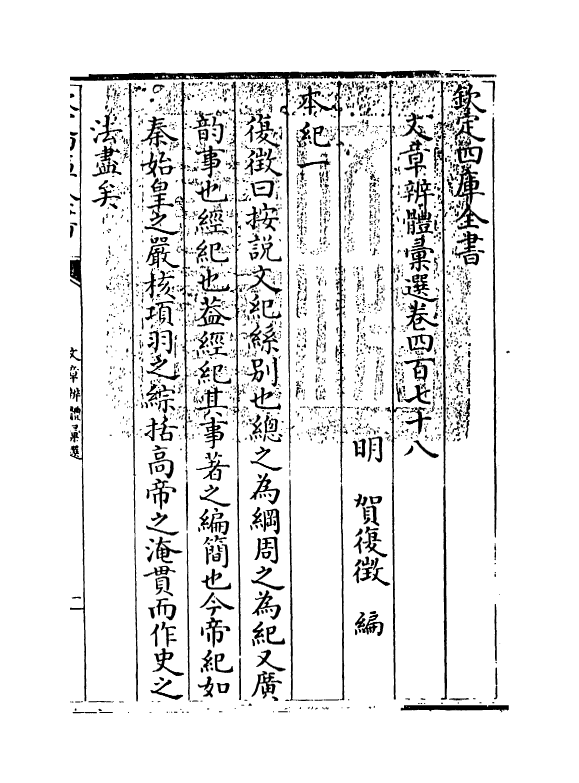 欽定四庫全書
文章辨體彚選卷四百七十八
明 賀復徵 編
本紀一
復徵曰按説文紀絲别也總之為綱周之為紀又廣
韵事也經紀也葢經紀其事著之編簡也今帝紀如
秦始皇之嚴核項羽之綜括高帝之淹貫而作史之
法盡矣
文章辨體彚選